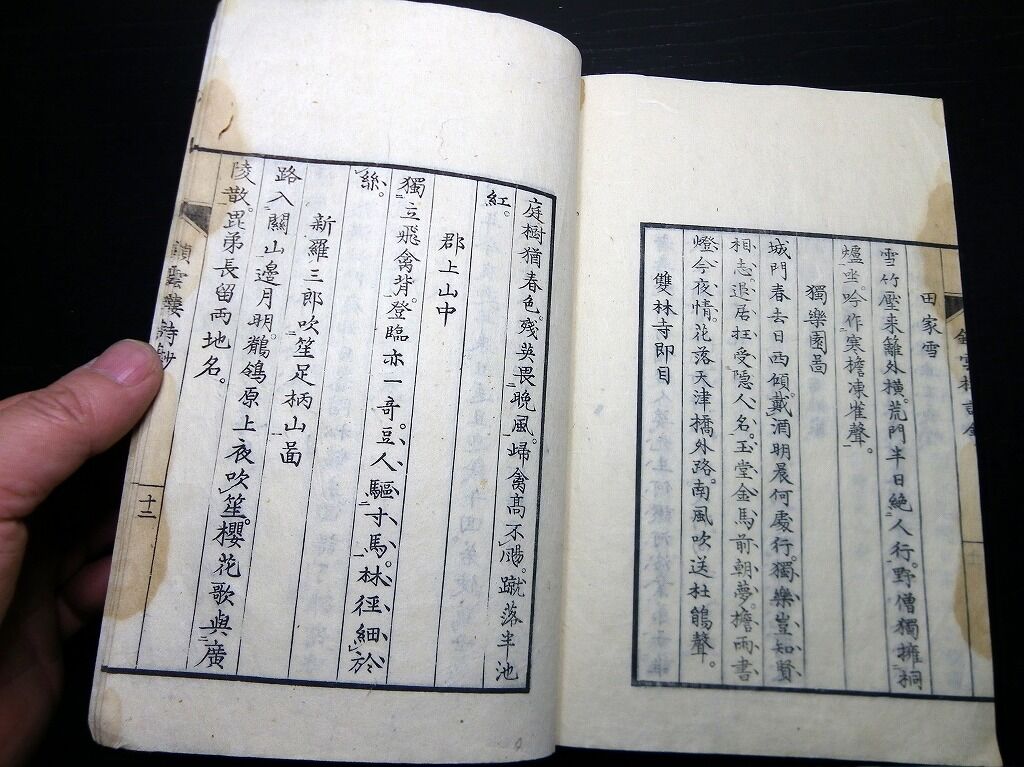 田家雪
雪竹壓来籬外橫。荒門半日絶人行。野僧獨擁桐
爐坐。吟作寒檐凍雀聲。
獨樂園啚
城門春去日西傾。戴酒明晨何處行。獨樂豈知賢
相志。退居狂受隠人名。玉堂金馬前朝夢。檐雨書
燈今夜情。花落天津橋外路。南風吹送杜鵑聲。
雙林寺即目
庭樹猶春色。殘英畏晩風。歸禽高不颺。蹴落半池
紅。
郡上山中
獨立飛禽背。登臨亦一哥。豆人驅寸馬。林徑細於
絲。
新羅三郎吹笙足柄山啚
路入關山邊月明。鶺鴒原上夜吹笙。櫻花歌與廣
陵散。毘弟長留兩地名。
雲樓詩鈔
十二